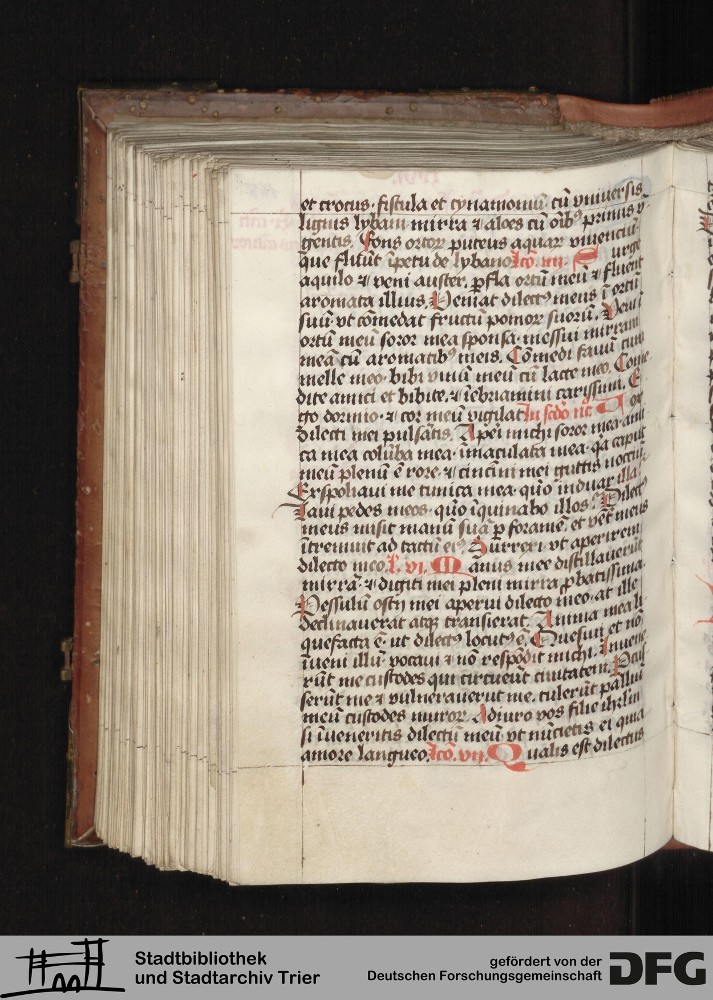 et crocus. fistula et cynamomū. cū vniuersis
lignis lybani. mirra ⁊ aloes cū oīb⁹ primis v
gentis. Fons ortoꝝ puteus aquaꝝ viuenciū.
que fluūt īpetu de lybano. lcō. iiij. S urge
aquilo ⁊ veni auster. ꝑfla ortū meū ⁊ fluent
aromata illius. Veniat dilect⁹ meus ī ortū
suū. vt cōmedat fructū pomoꝝ suoꝝ. Veni ī
ortū meū soror mea sponsa. messui mirram
meā cū aromatib⁹ meis. Cōmedi fauū cum
melle meo. bibi vinū meū cū lacte meo. Come
dite amici et bibite. ⁊ īebriamini carissimi. E
go dormio. ⁊ cor meū vigilat. In scdo nc̄. V ox
dilecti mei pulsātis. Aperi michi soror mea. ami
ca mea colūba mea. īmaculata mea. qa caput
meū plenū ē rore. ⁊ cincinni mei guttis noctiū.
Exspoliaui me tunica mea. quō induar illa?
Laui pedes meos. quō īquinabo illos? Dilect⁹
meus misit manū suā ꝑ foramē. et vēt meus
ītremuit ad tactū ei⁹. Surrexi. vt aperirem
dilecto meo. l. vi. M anus mee distillauerūt
mirrā. ⁊ digiti mei pleni mirra ꝓbatissima.
Pessulū ostij mei aperui dilecto meo. at ille
declinauerat atqꝫ transierat. Anima mea li
quefacta ē. ut dilect⁹ locut⁹ ē. Quesiui et nō
īueni illū. vocaui ⁊ nō respōdit michi. Inuene
rūt me custodes qui circueūt ciuitatem. Pcus
serūt me ⁊ vulnerauerūt me. tulerūt palliū
meū custodes muroꝝ. Adiuro vos filie ihrlm
si īueneritis dilectū meū vt nūcietis ei quia
amore langueo. lcō. vij. Q ualis est dilectus
Stadtbibliothek
und Stadtarchiv Trier
gefördert von der
Deutschen Forschungsgemeinschaft DFG